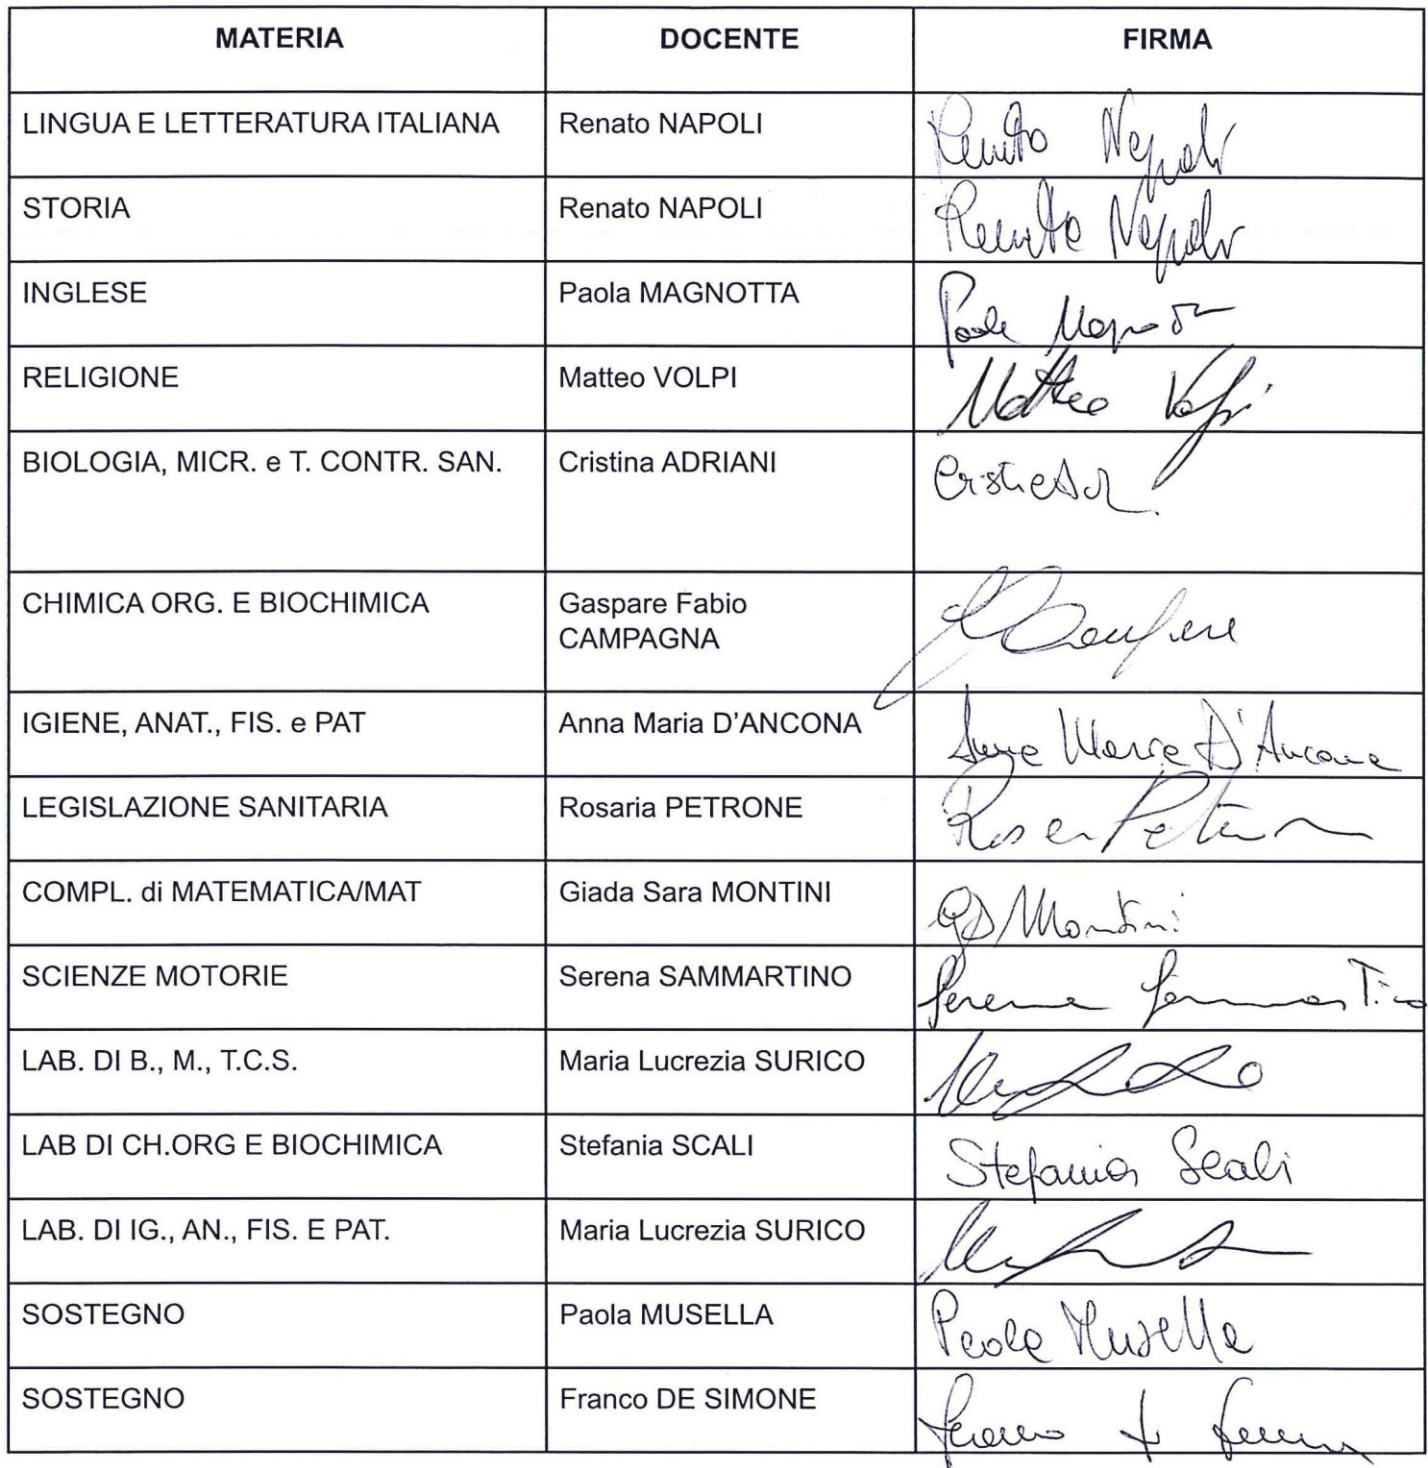 MATERIA DOCENTE FIRMA
LINGUA E LETTERATURA ITALIANA Renato NAPOLI Renato Napoli
STORIA Renato NAPOLI Renato Napoli
INGLESE Paola MAGNOTTA Paola
RELIGIONE Matteo VOLPI Matteo Volpi
BIOLOGIA, MICR. e T. CONTR. SAN. Cristina ADRIANI
CHIMICA ORG. E BIOCHIMICA Gaspare Fabio
CAMPAGNA
IGIENE, ANAT., FIS. e PAT Anna Maria D'ANCONA Anna Maria D'Ancona
LEGISLAZIONE SANITARIA Rosaria PETRONE
COMPL. di MATEMATICA/MAT Giada Sara MONTINI GS Montini
SCIENZE MOTORIE Serena SAMMARTINO Serena Sammartino
LAB. DI B., M., T.C.S. Maria Lucrezia SURICO
LAB DI CH.ORG E BIOCHIMICA Stefania SCALI Stefania Scali
LAB. DI IG., AN., FIS. E PAT. Maria Lucrezia SURICO
SOSTEGNO Paola MUSELLA Paola Musella
SOSTEGNO Franco DE SIMONE